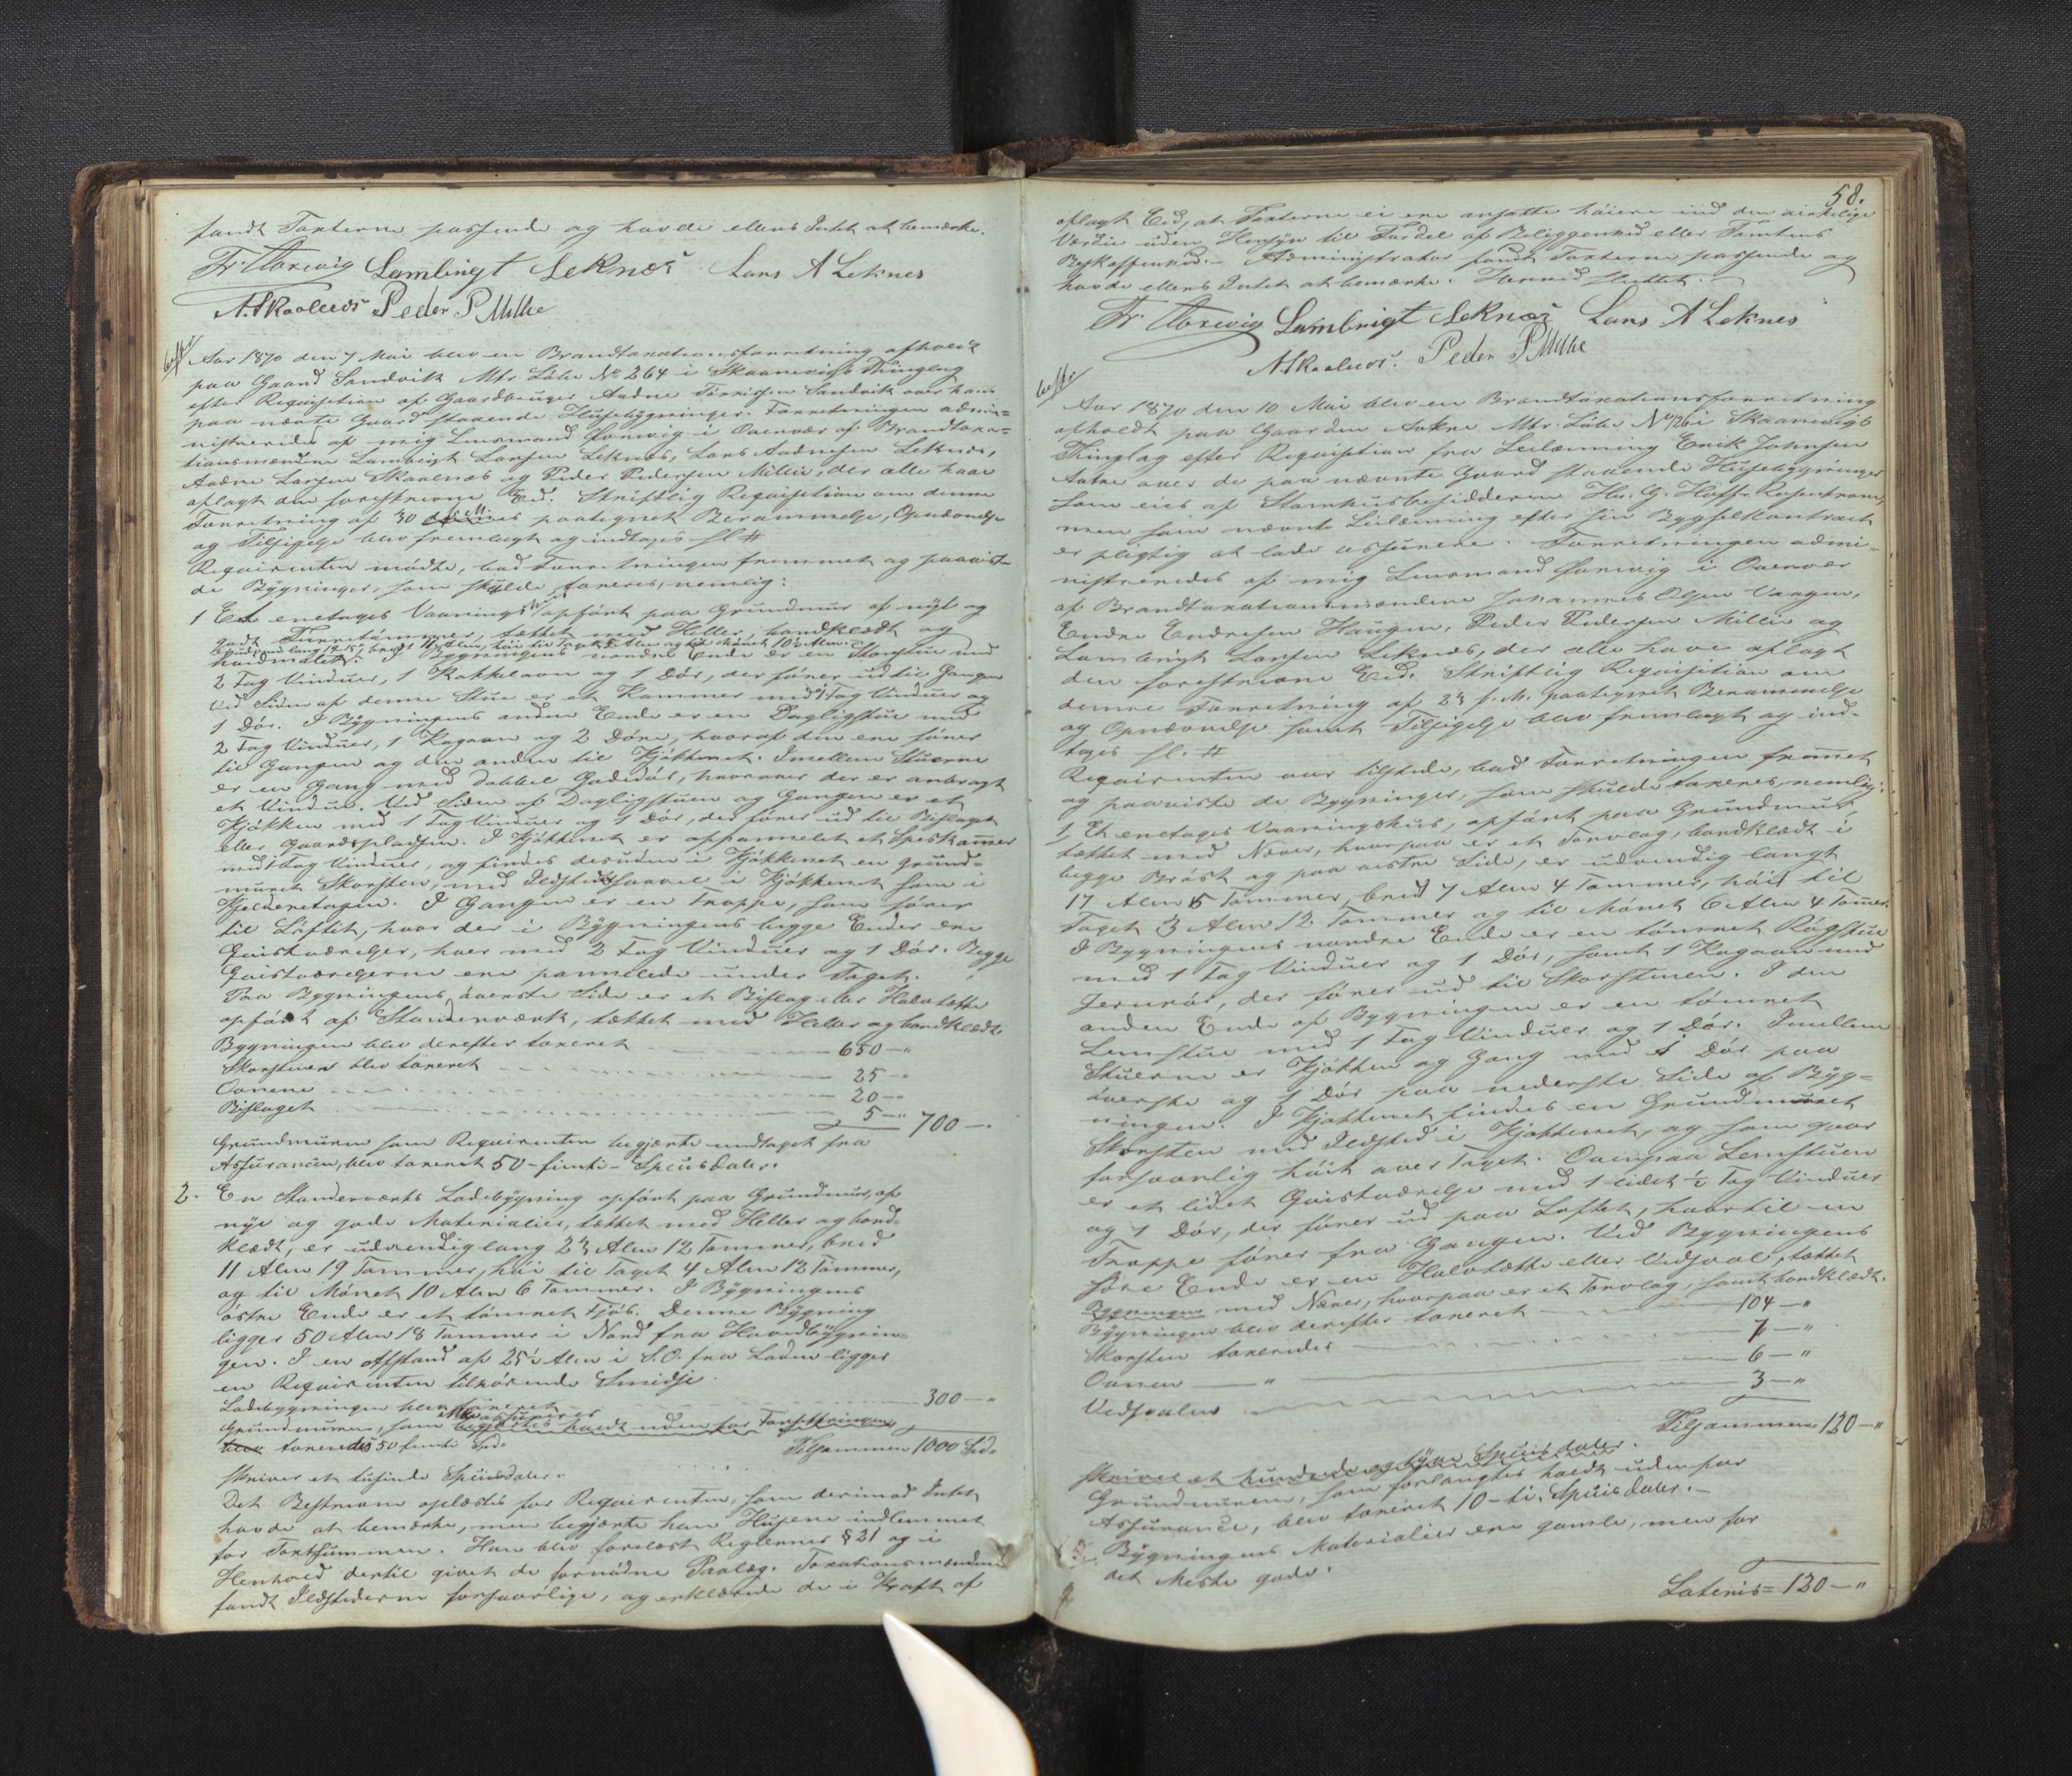 fandt Taxterne passende og havde ellers Intet at bemærke.
Fr. Lambrigt Leknæs Lars A Leknes
A. Skaalnes Peder P Milje
Aar 1870 den 7 Mai blev en Brandtaxationsforretning afholdt
paa Gaard Sandvik Mtr. Løbe No 264 i Skaanevigs Thinglag
efter Requisition af Gaardbruger Aadne Tørrisen Sandvik over hans
paa nævnte Gaard staaende Husebygninger. Forretningen admi-
nistreredes af mig Lensmand i af Brandtaxa-
tionsmændene Lambrigt Larsen Leknæs, Lars Aadnesen Leknæs,
Aadne Larsen Skaalnæs og Peder Pedersen Milje, der alle have
aflagt den foreskrevne Eed. Skriftlig Requisition om denne
Forretning af 30 paategnet Berammelse, Opnævnelse
og Tilsigelse blev fremlagt og indtages sl. #
Requirenten mødte, bad Forretningen fremmet og paaviste
de Bygninger, som skulde taxeres, nemlig:
1 Et enetages Vaaningshus opført paa Grundmur af nyt og
godt Furretømmer, tækket med Heller, bordklædt og
2 Fag Vinduer, 1 Kakkelovn og 1 Dør, der fører ud til Gangen
Ved Siden af denne Stue er et Kammer med 1 Fag Vinduer og
1 Dør. I Bygningens anden Ende er en Dagligstue med
2 Fag Vinduer, 1 Kogeovn og 2 Døre, hvoraf den ene fører
til Gangen og den anden til Kjøkkenet. Imellem Stuerne
er en Gang med dobbel Gadedør, hvorover der er anbragt
et Vindue. Ved Siden af Dagligstuen og Gangen er et
Kjøkken med 1 Fag Vinduer og 1 Dør, der fører ud til Bislaget
eller Gaardspladsen. I Kjøkkenet er afpannelet et Spiskammer
med 1 Fag Vinduer, og findes desuden i Kjøkkenet en grund-
muret Skorsten, med Ildsted saavel i Kjøkkenet som i
Kjelderetagen. I Gangen er en Trappe, som fører
til Loftet, hvor der i Bygningens begge Ender ere
Qvistværelser, hver med 2 Fag Vinduer og 1 Dør. Begge
Qvistværelserne ere pannelede under Taget.
Paa Bygningens øverste Side er et Bislag eller Halvtække
opført af Stenderværk, tækket med Heller og bordklædt.
Bygningen blev derefter taxeret 650 -"
Skorstenen blev taxeret 25 -"
Ovnene 20 -"
Bislaget 5 -" 700 -
Grundmuren som Requirenten begjærte undtaget fra
Assurancen, blev taxeret 50 - femti - Speciedaler.
2. En Stenderværks Ladebygning opført paa Grundmur, af
nye og gode Materialier, tækket med Heller og bord-
klædt, er udvendig lang 23 Alen 12 Tommer, bred
11 Alen 19 Tommer, høi til Taget 4 Alen 12 Tommer,
og til Mønet 10 Alen 6 Tommer. I Bygningens
østre Ende er et tømret Fjøs. Denne Bygning
ligger 50 Alen 18 Tommer i Nord fra Hovedbygnin-
gen. I en Afstand af 25½ Alen i S.O. fra Laden ligger
en Requirenten tilhørende Smidje.
Ladebygningen blev taxeret 300 -"
Grundmuren, som begjærtes holdt uden for Forsikringen
blev taxeredes 50 femti Spd. Tilsammen 1000 Spd.
skriver et tusinde Speciedaler.
Det Beskrevne oplæstes for Requirenten, som derimod Intet
havde at bemærke, men begjærte han Husene indlemmet
for Taxtsummen. Han blev forelæst Reglernes § 21 og i
Henhold dertil givet de fornødne Paalæg. Taxationsmændene
fandt Ildstederne forsvarlige, og erklærede de i Kraft af
58.
aflagt Eed, at Taxterne ei ere ansatte høiere end den virkelige
Værdie uden Hensyn til Fordel af Beliggenhed eller Tomtens
Beskaffenhed. - Administrator fandt Taxterne passende og
havde ellers Intet at bemærke. Hermed sluttet.
Fr. Lambrigt Leknæs Lars A Leknes
A. Skaalnes. Peder P Milje
Aar 1870 den 10 Mai blev en Brandtaxationsforretning
afholdt paa Gaarden Mtr. Løbe No 126 i Skaanevigs
Thinglag efter Requisition fra Leilænning Erik Johnsen
over de paa nævnte Gaard staaende Husebygninger
som eies af Stamhusbesidderen Hr. G. Hoff-Rosenkrone,
men som nævnte Leilænning efter sin Bygselkontract
er pligtig at lade assurere. Forretningen admi-
nistreredes af mig Lensmand i
af Brandtaxationsmændene Johannes Olsen Vaagen,
Endre Endresen Haugen, Peder Pedersen Milje og
Lambrigt Larsen Leknæs, der alle have aflagt
den foreskrevne Eed. Skriftlig Requisition om
denne Forretning af 23 f. M. paategnet Berammelse
og Opnævnelse samt Tilsigelse blev fremlagt og ind-
tages sl. #
Requirenten var tilstede, bad Forretningen fremmet
og paaviste de Bygninger, som skulde taxeres, nemlig:
1, Et enetages Vaaningshus, opført paa Grundmur
tækket med Næver, hvorpaa er et Torvlag, bordklædt i
begge Brøst og paa vestre Side, er udvendig langt
17 Alen 5 Tommer, bred 7 Alen 4 Tommer, høit til
Taget 3 Alen 12 Tommer og til Mønet 6 Alen 4 Tommer.
I Bygningens nordre Ende er en tømret Røgstue
med 1 Fag Vinduer og 1 Dør, samt 1 Kogeovn med
Jernrør, der fører ud til Skorstenen. I den
anden Ende af Bygningen er en tømret
Lemstue med 1 Fag Vinduer og 1 Dør. Imellem
Stuerne er Kjøkken og Gang med 1 Dør paa
øverste og 1 Dør paa nederste Side af Byg-
ningen. I Kjøkkenet findes en Grundmuret
Skorsten med Ildsted i Kjøkkenet, og som gaar
forsvarlig høit over Taget. Ovenpaa Lemstuen
er et lidet Qvistværelse med 1 lidet ½ Fag Vinduer
og 1 Dør, der fører ud paa Loftet, hvortil en
Trappe fører fra Gangen. Ved Bygningens
søre Ende er en Halvtække eller Vedsval, tækket
Bygningen med Næver, hvorpaa er et Torvlag, samt bordklædt.
Bygningen blev derefter taxeret 104 -"
Skorsten taxeredes 7 -"
Ovnen " 6 -"
Vedsvalen 3 -"
Tilsammen 120 -"
skriver et hundrede og tyve Speciedaler.
Grundmuren, som forlangtes holdt uden for
Assurance, blev taxeret 10 - ti Speciedaler. -
Bygningens Materialier ere gamle, men for
det Meste gode.
Lateris = 120 -"